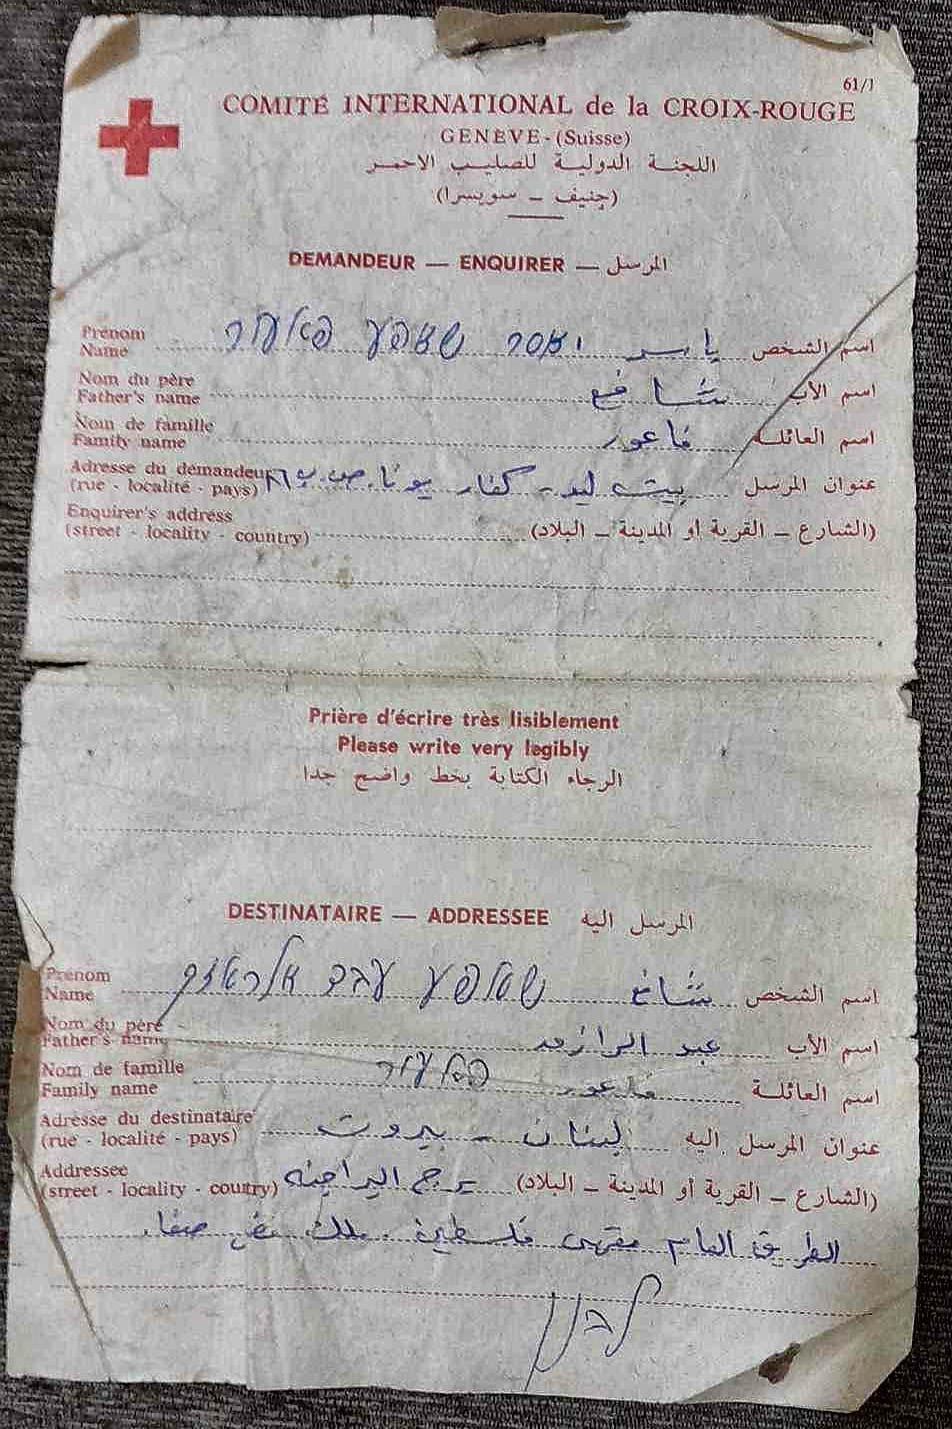 61/1
COMITÉ INTERNATIONAL de la CROIX-ROUGE
GENÈVE - (Suisse)
اللجنة الدولية للصليب الاحمر
(جنيف – سويسرا)
DEMANDEUR — ENQUIRER — المرسل
Prénom
Name יאסר שאפע פאעור ياسر اسم الشخص
Nom du père
Father's name شافع اسم الأب
Nom de famille
Family name فاعور اسم العائلة
Adresse du demandeur
(rue - localité - pays) بيت ليد - كفار يونا ص.ب عنوان المرسل
Enquirer's address
(street - locality - country) (الشارع – القرية أو المدينة – البلاد)
Prière d'écrire très lisiblement
Please write very legibly
الرجاء الكتابة بخط واضح جدا
DESTINATAIRE — ADDRESSEE المرسل اليه
Prénom
Name שאפע עבד אלראזק شافع اسم الشخص
Nom du père
Father's name عبد الرازق اسم الأب
Nom de famille
Family name פאעור فاعور اسم العائلة
Adresse du destinataire
(rue - localité - pays) لبنان - بيروت عنوان المرسل اليه
Addressee
(street - locality - country) برج البراجنه (الشارع – القرية أو المدينة – البلاد)
الطريق العام مقهى فلسطين ملك
לבנון